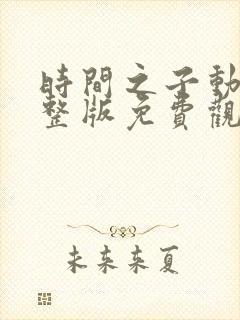 時間之子動
整版免費觀
未来来夏